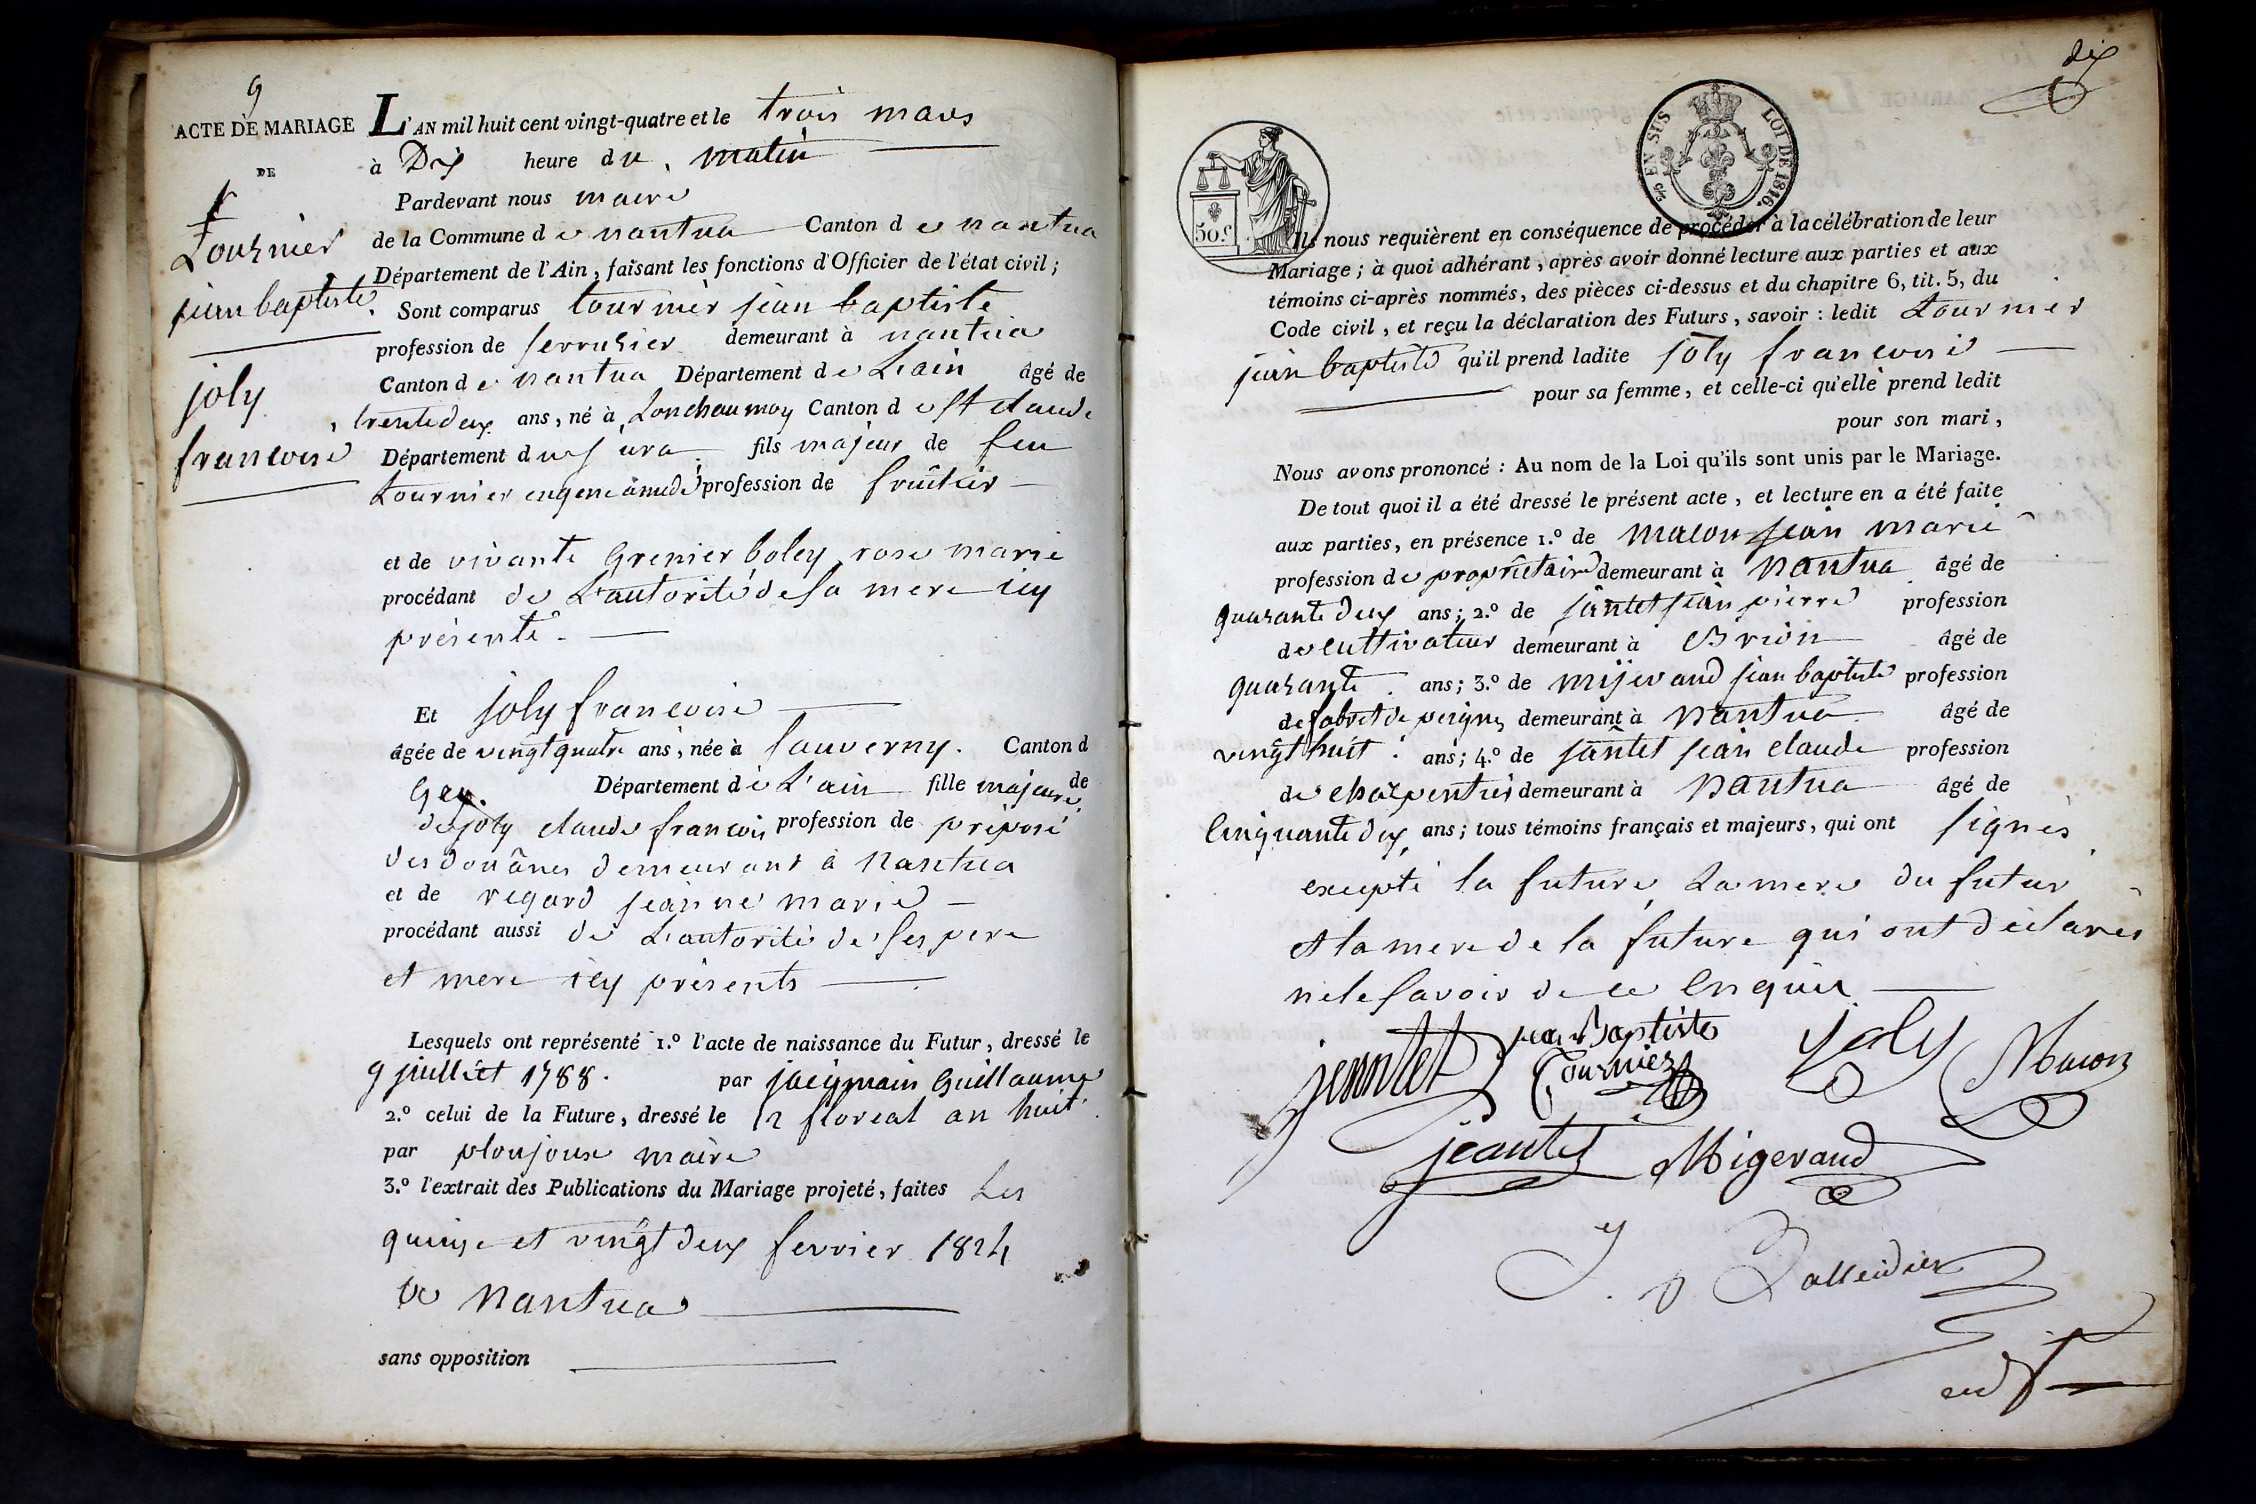 9
ACTE DE MARIAGE
DE
tournier
jean baptiste.
joly
francoise
L'AN mil huit cent vingt-quatre et le trois mars
à Dix heure du matin
Pardevant nous maire
de la Commune de nantua Canton de nantua
Département de l'Ain, faisant les fonctions d'Officier de l'état civil;
Sont comparus tournier jean baptiste
profession de serrurier demeurant à nantua
Canton de nantua Département de L'ain âgé de
trente deux ans, né à Lonchaumoy Canton de st claude
Département du jura fils majeur de feu
tournier eugene amedé profession de fruitier
et de vivante Grenier boley rose marie
procédant de L'autorité de sa mere icy
présente.
Et joly francoise
âgée de vingt quatre ans, née à sauverny. Canton d
Gex. Département de L'ain fille majeure de
de joly claude francois profession de préposé
des douânes demeurant à Nantua
et de regard jeanne marie
procédant aussi de L'autorité de ses pere
et mere icy présents
Lesquels ont représenté 1.º l'acte de naissance du Futur, dressé le
9 juillet 1788. par jacqmain Guillaume
2.º celui de la Future, dressé le 12 floreal an huit.
par ploujoux maire
3.º l'extrait des Publications du Mariage projeté, faites Les
quinze et vingt deux fevrier 1824
Nantua
sans opposition
dix
50.c
EN SUS LOI DE 1816.
Ils nous requièrent en conséquence de procéder à la célébration de leur
Mariage; à quoi adhérant, après avoir donné lecture aux parties et aux
témoins ci-après nommés, des pièces ci-dessus et du chapitre 6, tit. 5, du
Code civil, et reçu la déclaration des Futurs, savoir: ledit tournier
jean baptiste qu'il prend ladite joly francoise
pour sa femme, et celle-ci qu'elle prend ledit
pour son mari,
Nous avons prononcé: Au nom de la Loi qu'ils sont unis par le Mariage.
De tout quoi il a été dressé le présent acte, et lecture en a été faite
aux parties, en présence 1.º de macon jean marie
profession de propriétaire demeurant à Nantua âgé de
quarante deux ans; 2.º de jantet jean pierre profession
de cultivateur demeurant à Brion âgé de
quarante. ans; 3.º de mijerand jean baptiste profession
de fabrict de peignes demeurant à Nantua âgé de
vingt huit. ans; 4.º de jantet jean claude profession
de charpentier demeurant à Nantua âgé de
Cinquante deux ans; tous témoins français et majeurs, qui ont signés
excepté la future, La mere du futur
et la mere de la future qui ont déclarés
ne le savoir de ce Enquis
jenntet jean Baptiste Tournier joly Macon
jeantet Migerand